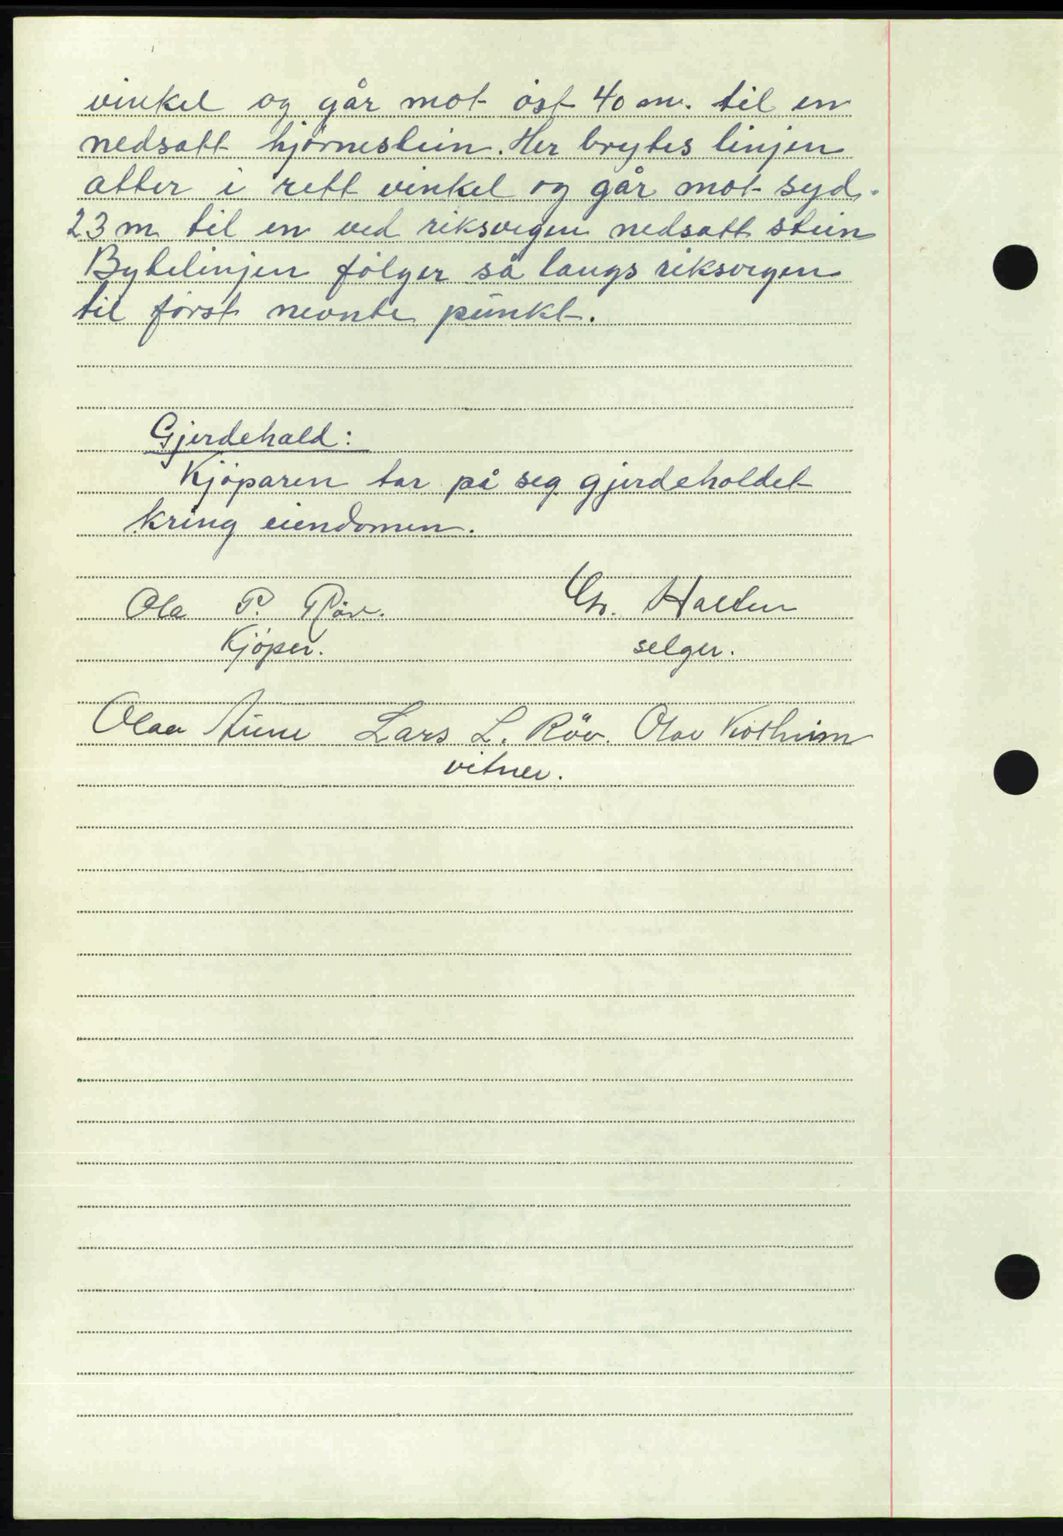 vinkel og går mot öst 40 m. til en
nedsatt hjörnestein. Her brytes linjen
atter i rett vinkel og går mot syd.
23 m til en ved riksvegen nedsatt stein
Bytelinjen fölger så langs riksvegen
til först nevnte punkt.
Gjerdehald:
Kjöparen tar på seg gjerdeholdet
kring eiendomen.
Ola P. Röv. Chr. Halten
Kjöper. selger.
Olav Aune Lars L. Röv. Olav
vitner.